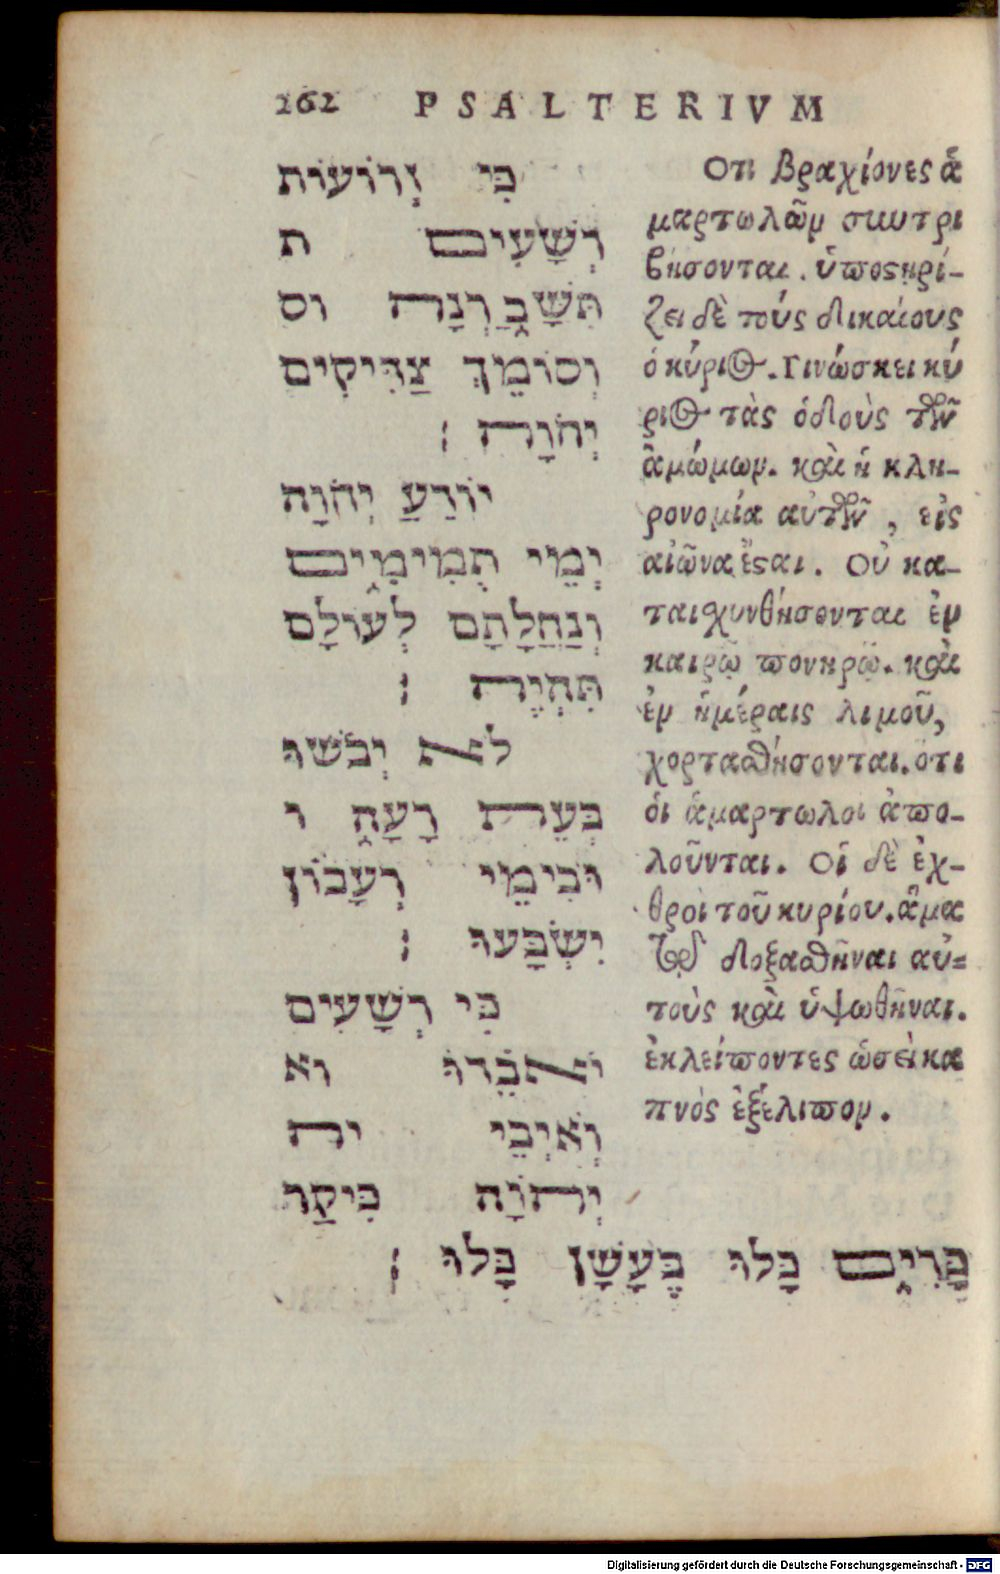 262 PSALTERIVM
כִּי זְרוֹעוֹת
רְשָׁעִים ת
תִּשָּׁבַ֑רְנָה וס
וְסוֹמֵךְ צַדִּיקִים
יְהֹוָה :
יוֹדֵעַ יְהֹוָה
יְמֵי תְמִימִ֑ים
וְנַחֲלָתָם לְעוֹלָם
תִּהְיֶה :
לֹא יֵבֹשׁוּ
בְּעֵת רָעָה֑ ו
וּבִימֵי רְעָבוֹן
יִשְׂבָּעוּ :
כִּי רְשָׁעִים
יֹאבֵדוּ וא
וְאֹיְבֵי יה
יְהֹוָה כִּיקַר
כָּרִ֑ים כָּלוּ בֶּעָשָׁן כָּלוּ :
Οτι βραχίονες ἁ
μαρτωλῶν συντρι
βήσονται. ὑποστηρί-
ζει δὲ τοὺς δικαίους
ὁ κύριος. Γινώσκει κύ
ριος τὰς ὁδοὺς τῶν
ἀμώμων. καὶ ἡ κλη-
ρονομία αὐτῶν, εἰς
αἰῶνα ἔσται. Οὐ κα-
ταισχυνθήσονται ἐν
καιρῷ πονηρῷ. καὶ
ἐν ἡμέραις λιμοῦ,
χορτασθήσονται. ὅτι
οἱ ἁμαρτωλοι ἀπο-
λοῦνται. Οἱ δὲ ἐχ-
θροὶ τοῦ κυρίου. ἅμα
τῷ δοξασθῆναι αὐ-
τοὺς καὶ ὑψωθῆναι.
ἐκλείποντες ὡσεὶ κα
πνὸς ἐξέλιπον.
Digitalisierung gefördert durch die Deutsche Forschungsgemeinschaft - DFG